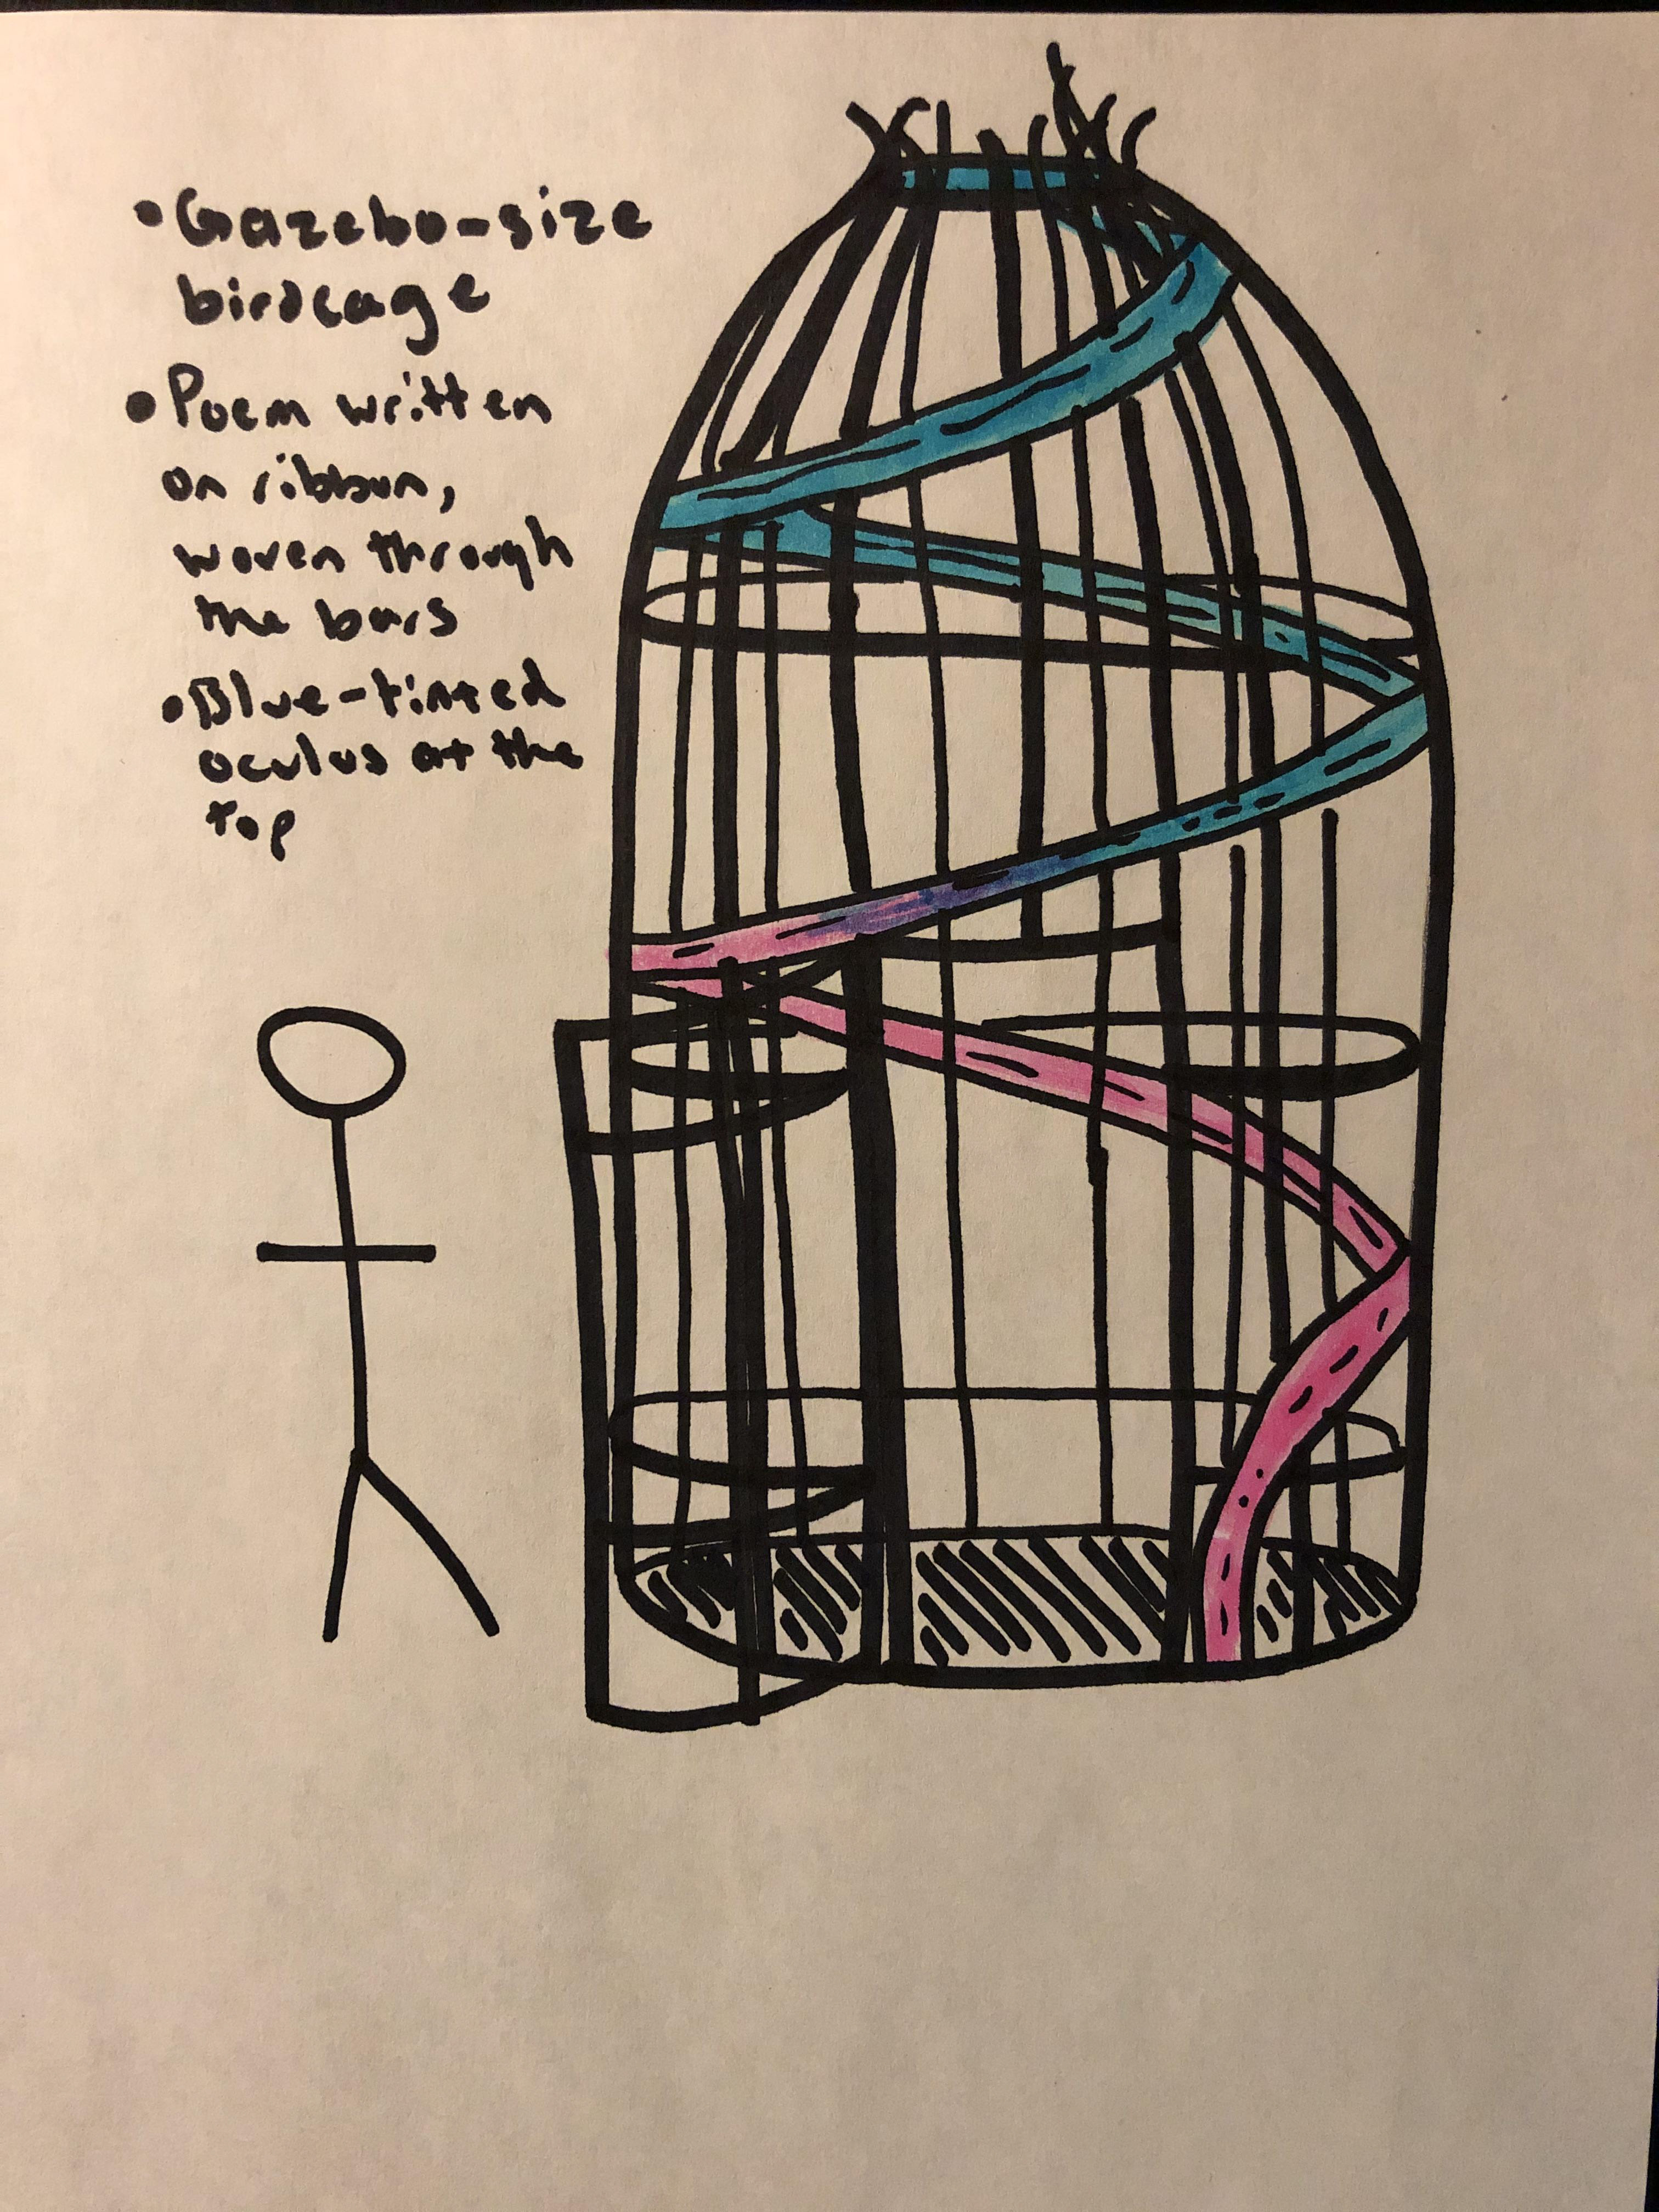 • Gazebo-size
birdcage
• Poem written
on ribbon,
woven through
the bars
• Blue-tinted
oculus at the
top